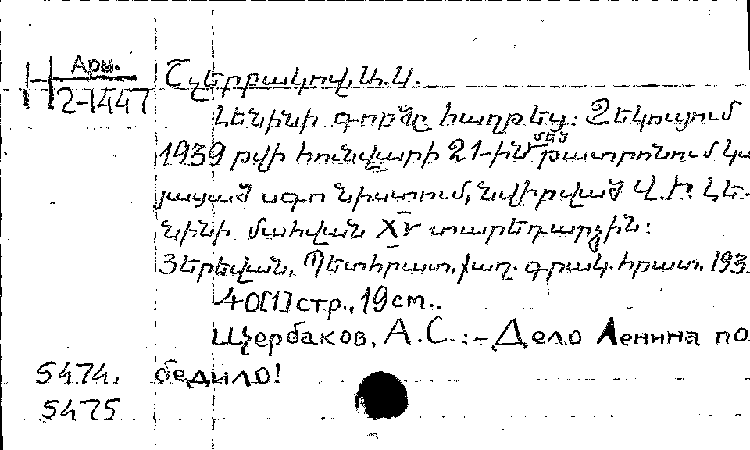 Арм.
2-1447
Շչերբակով, Ա. Ս.
Լենինի գործը հաղթեց: Զեկուցում
1939 թվի հունվարի 21-ին մեծ թատրոնում կա-
յացած սգո նիստում, նվիրված Վ. Ի. Լե-
նինի մահվան XV տարեդարձին:
Յերեվան, Պետհրատ. քաղ. գրակ. հրատ. 193
40[1] стр., 19 см..
Щербаков, А. С. :- Дело Ленина по
5474. бедило!
5475